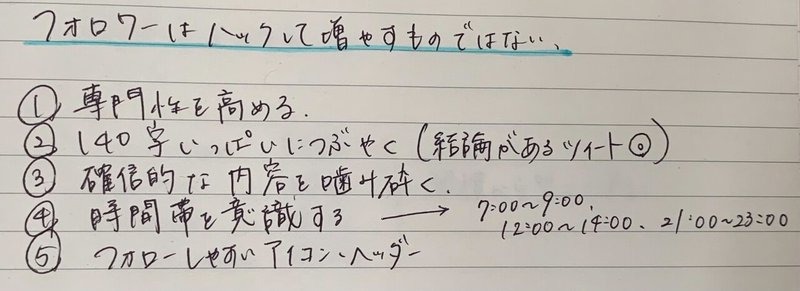 フォロワーはハックして増やすものではない、
① 専門性を高める.
② 140字いっぱいにつぶやく(結論があるツイート◎)
③ 確信的な内容を噛み砕く.
④ 時間帯を意識する → 7:00〜9:00、
12:00〜14:00、21:00〜23:00
⑤ フォローしやすいアイコン・ヘッダー